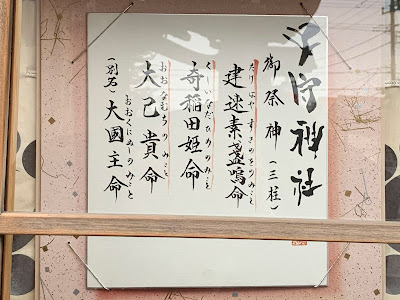 子守神社
御祭神(三柱)
たけはやすさのをのみこと
建速素盞嗚命
くしいなだひめのみこと
奇稲田姫命
おおなむちのみこと
大己貴命
おおくにぬしのみこと
(別名)大國主命